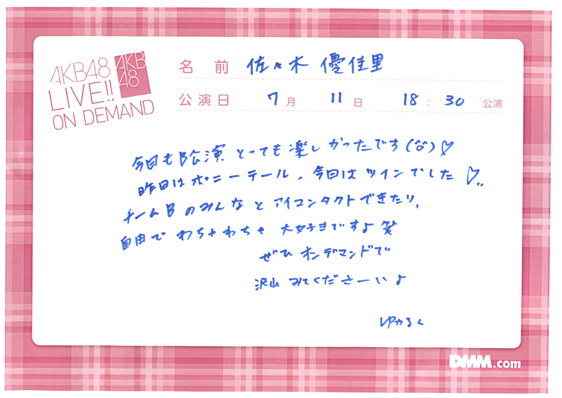 AKB48
LIVE!!
ON DEMAND
AKB
48
名 前 佐々木 優佳里
公演日 7月 11日 18:30 公演
今日も公演 とっても楽しかったです
昨日はポニーテール、今日はツインでした♡
チームBのみんなとアイコンタクトできたり、
自由でわちゃわちゃ 大好きですよ笑
ぜひオンデマンドで
沢山みてくださーいよ
ゆかるん
DMM.com